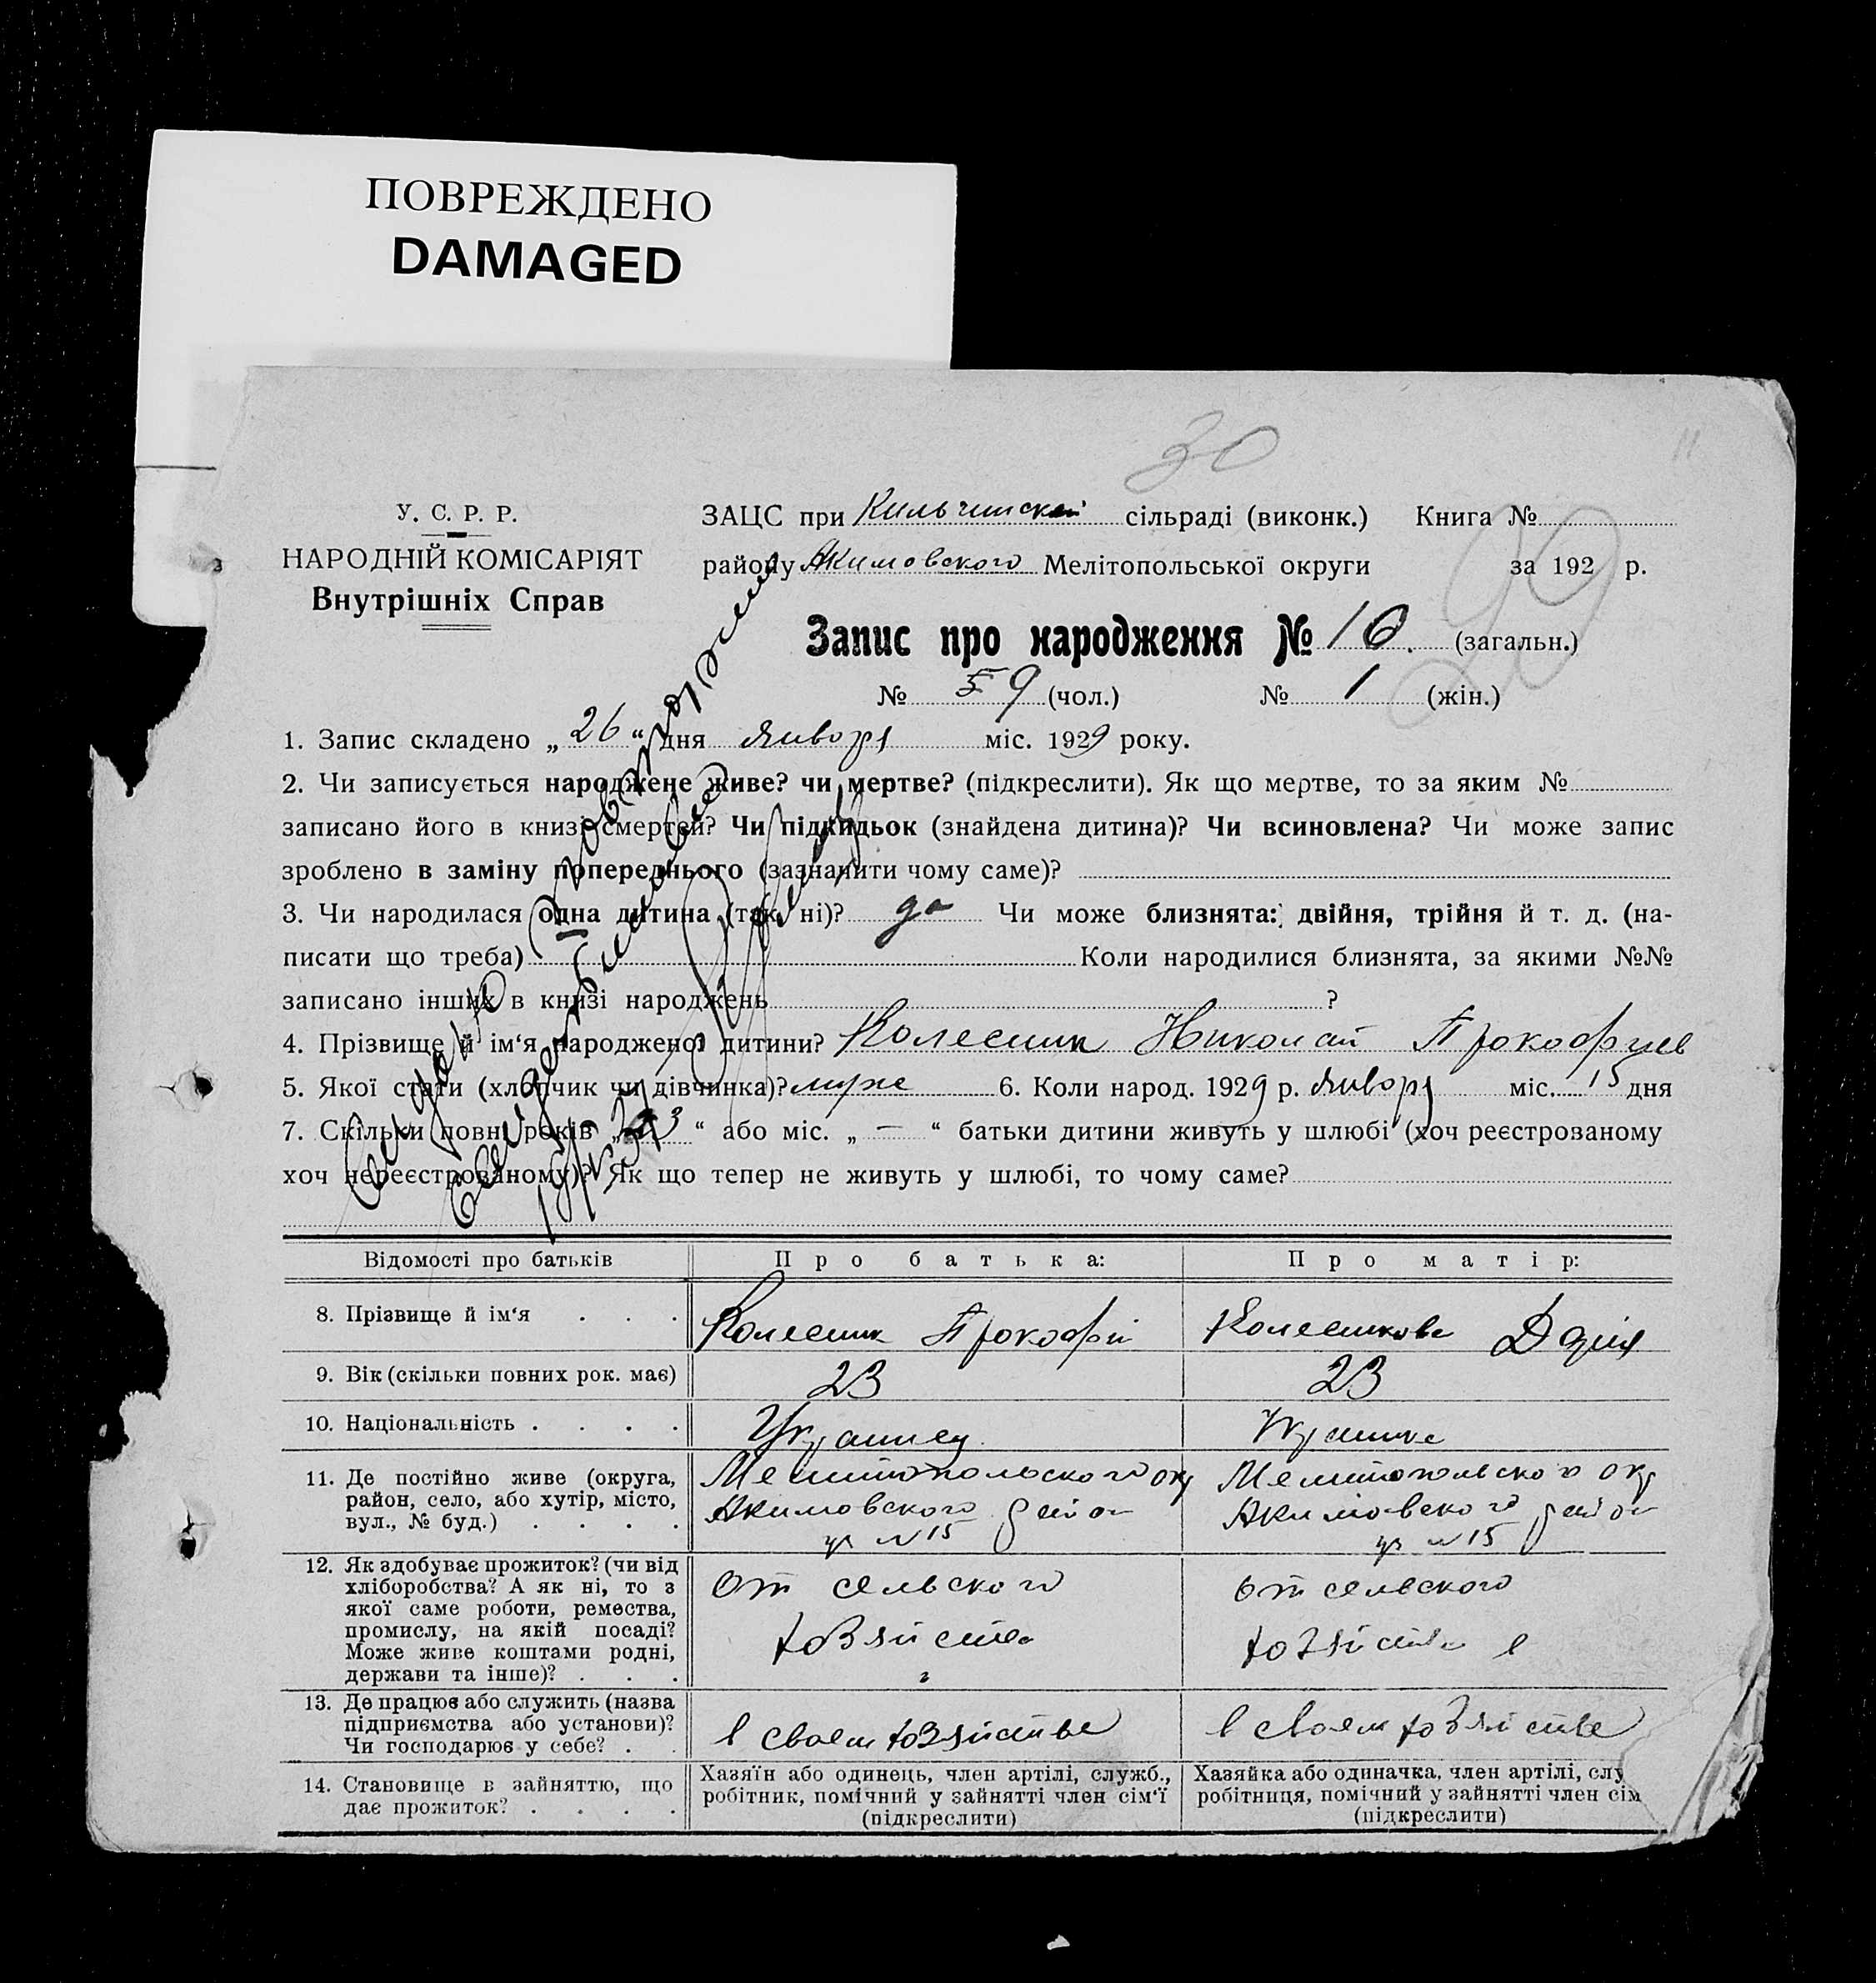 ПОВРЕЖДЕНО
DAMAGED
30
У. С. Р. Р.
НАРОДНІЙ КОМІСАРІЯТ
Внутрішніх Справ
ЗАЦС при сільраді (виконк.) Книга №
району Акимовского Мелітопольської округи за 192 р.
Запис про народження № 10. (загальн.)
№ 9 (чол.) № 1 (жін.)
1. Запис складено „ 26 “ дня января міс. 1929 року.
2. Чи записується народжене живе? чи мертве? (підкреслити). Як що мертве, то за яким №
записано його в книзі смертей? Чи підкидьок (знайдена дитина)? Чи всиновлена? Чи може запис
зроблено в заміну попереднього (зазначити чому саме)?
3. Чи народилася одна дитина (так, ні)? да Чи може близнята: двійня, трійня й т. д. (на-
писати що треба) Коли народилися близнята, за якими №№
записано інших в книзі народжень ?
4. Прізвище й ім‘я народженої дитини? Колесник Николай Прокофиев
5. Якої стати (хлопчик чи дівчинка)? муже 6. Коли народ. 1929 р. январ міс. 15 дня
7. Скільки повні років „ 3 “ або міс. „ — “ батьки дитини живуть у шлюбі (хоч реєстрозаному
хоч нереєстрованому)? Як що тепер не живуть у шлюбі, то чому саме?
Выдано повторное
свидетельство
Відомості про батьків Про батька: Про матір:
8. Прізвище й ім‘я . . . Колесник Прокофий Колесникова Дария
9. Вік (скільки повних рок. має) 23 23
10. Національність . . . . Украинец Украинка
11. Де постійно живе (округа,
район, село, або хутір, місто,
вул., № буд.) . . . .
Мелитопольского окр
Акимовского район
№ 15
Мелитопольского окр
Акимовского район
№ 15
12. Як здобуває прожиток? (чи від
хліборобства? А як ні, то з
якої саме роботи, ремества,
промислу, на якій посаді?
Може живе коштами родні,
держави та інше)? . . .
От сельского
хозяйства
От сельского
хозяйства
13. Де працює або служить (назва
підприємства або установи)?
Чи господарює у себе? . .
в своем хозяйстве
в своем хозяйстве
14. Становище в зайняттю, що
дає прожиток? . . . .
Хазяїн або одинець, член артілі, служб.,
робітник, помічний у зайнятті член сім‘ї
(підкреслити)
Хазяйка або одиначка, член артілі, слу
робітниця, помічний у зайнятті член сім
(підкреслити)